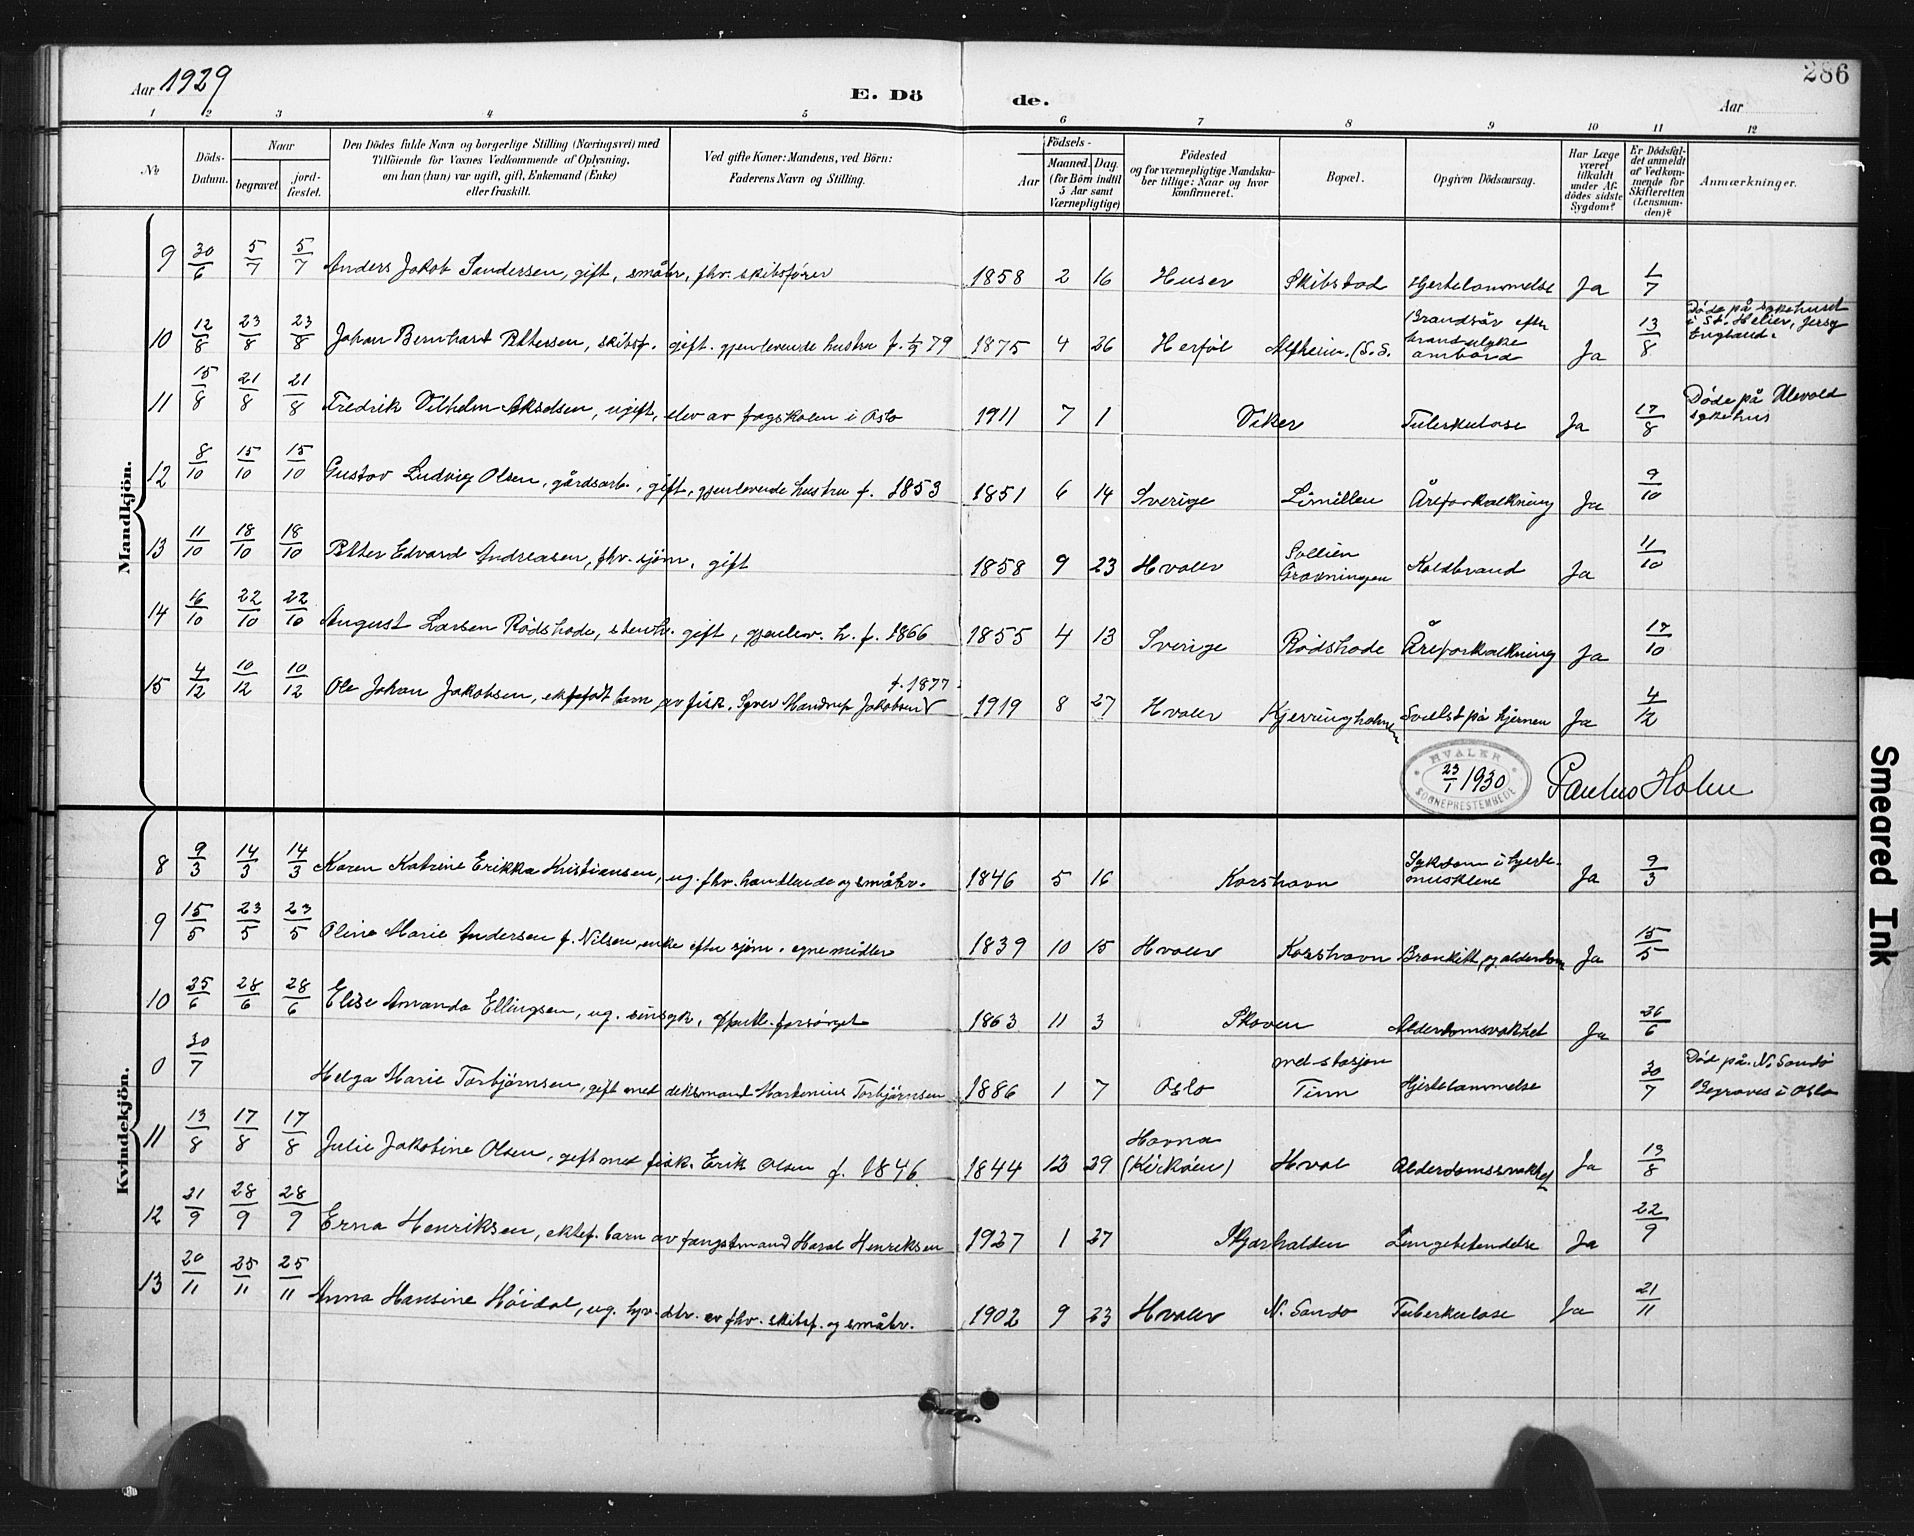 Aar 1929
E. Döde.
286
Aar
1 2 3 4 5 6 7 8 9 10 11 12
No
Döds-Datum.
Naar
begravet
jordfæstet.
Den Dödes fulde Navn og borgerlige Stilling (Næringsvei) med
Tilföiende for Voxnes Vedkommende af Oplysning,
om han (hun) var ugift, gift, Enkemand (Enke)
eller fraskilt.
Ved gifte Koner: Mandens, ved Börn:
Faderens Navn og Stilling.
Födsels-
Aar
Maaned.
Dag.
(for Börn indtil
5 Aar samt
Værnepligtige)
Födested
og for værnepligtige Mandskaber tillige: Naar og hvor
konfirmeret.
Bopæl.
Opgiven Dödsaarsag.
Har Læge
været
tilkaldt
under Afdödes sidste
Sygdom?
Er Dödsfaldet anmeldt
af Vedkommende for
Skifteretten
(Lensmanden)?
Anmærkninger.
Mandkjön.
9 30/6 5/7 5/7 Anders Jakob Sandersen, gift, småbr, fhv. skibsfører 1858 2 16 Huser Skibstad Hjertelammelse Ja 1/7
10 12/8 23/8 23/8 Johan Bernhard Pettersen, skibsf. gift. gjenlevende hustru f. 79 1875 4 26 Herføl Alfheim (S.S. Brandsår efter brandulyke ombord Ja 13/8 Døde på sykehuset i St. Helier, Jersy England.
11 15/8 21/8 21/8 Fredrik Vilhelm Akselsen, ugift, elev av fagskolen i Oslo 1911 7 1 Viker Tuberkulose Ja 17/8 Døde på Ulevold sykehus
12 8/10 15/10 15/10 Gustav Ludvig Olsen, gårdsarb., gift, gjenlevende hustru f. 1853 1851 6 14 Sverige Limillen Åreforkalkning Ja 9/10
13 11/10 18/10 18/10 Petter Edvard Andreasen, fhv. sjøm, gift 1858 9 23 Hvaler Sollien Gravningen Koldbrand Ja 11/10
14 16/10 22/10 22/10 August Larsen Rødshode, stenh. gift, gjenlev. h. f. 1866 1855 4 13 Sverige Rødshode Åreforkalkning Ja 17/10
15 4/12 10/12 10/12 Ole Johan Jakobsen, ektefødt barn av fisk. Syver Mandrup Jakobsen f. 1877 1919 8 27 Hvaler Kjerringholmen Svulst på hjernen Ja 4/12
HVALER SOGNEPRESTEMBEDE
23/1 1930
Paulus Holm
Kvindekjön.
8 9/3 14/3 14/3 Karen Katrine Erikka Kristiansen, ug. fhv. handlende og småbr. 1846 5 16 Korshavn Sykdom i hjertemusklene Ja 9/3
9 15/5 23/5 23/5 Oline Marie Andersen f. Nilsen, enke efter sjøm. egne midler 1839 10 15 Hvaler Korshavn Bronkitt og alderdom Ja 15/5
10 25/6 28/6 28/6 Elise Amanda Ellingsen, ug. sinsyk, offentl. forsørget 1863 11 3 Skoven Alderdomsvakhet Ja 26/6
0 30/7 Helga Marie Torbjørnsen, gift med deksmand Martenius Torbjørnsen 1886 1 7 Oslo ved stasjon Tinn Hjertelammelse 30/7 Død på N. Sandø Begraves i Oslo
11 13/8 17/8 17/8 Julie Jakobine Olsen, gift med fisk. Erik Olsen f. 1846 1844 12 29 Havna (Kirkøen) Hval Alderdomssvakhet Ja 13/8
12 21/9 28/9 28/9 Erna Henriksen, ektef. barn av fangstmand Haral Henriksen 1927 1 27 Skjærhalden Lungebetendelse Ja 22/9
13 20/11 25/11 25/11 Anna Hansine Høidal, ug. hjv. dtr. av fhv. skibsf. og småbr. 1902 9 23 Hvaler N. Sandø Tuberkulose Ja 21/11
Smeared Ink